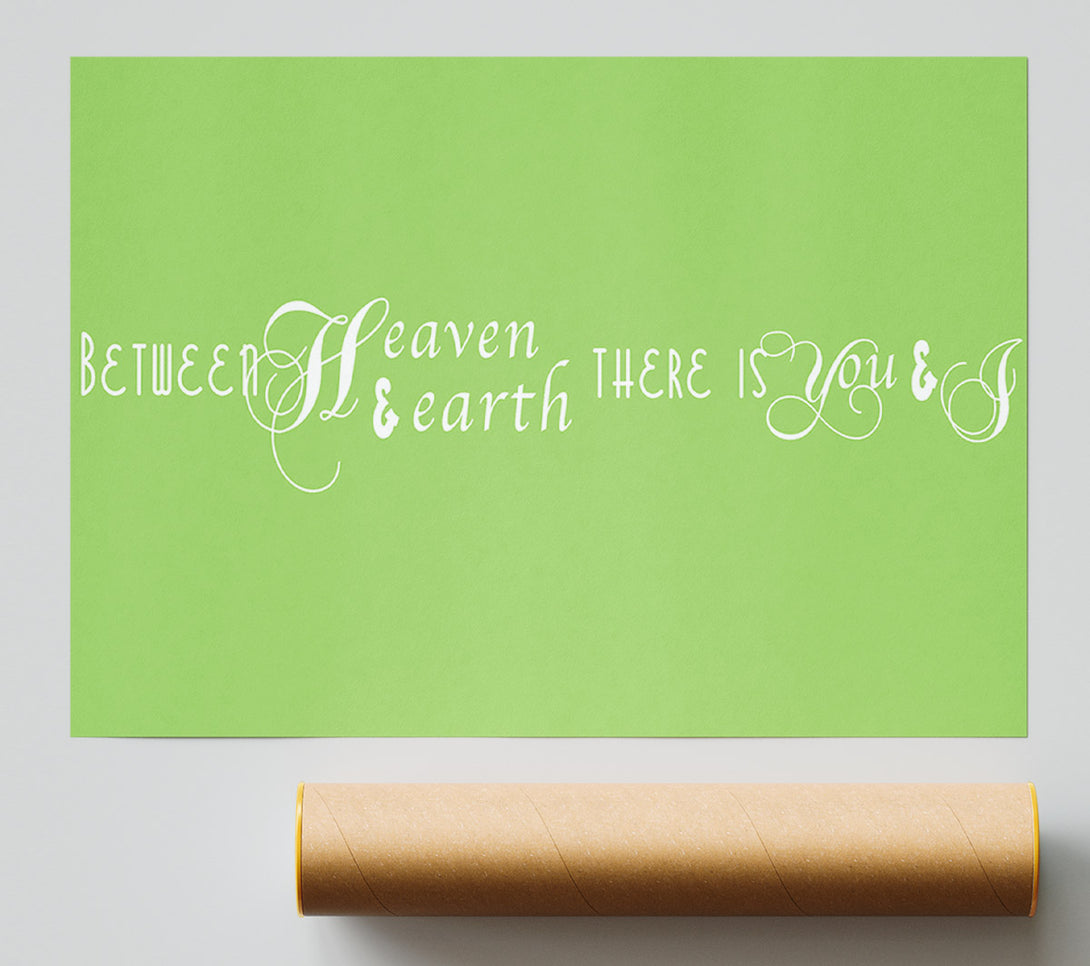 Between Heaven & earth there is You & I